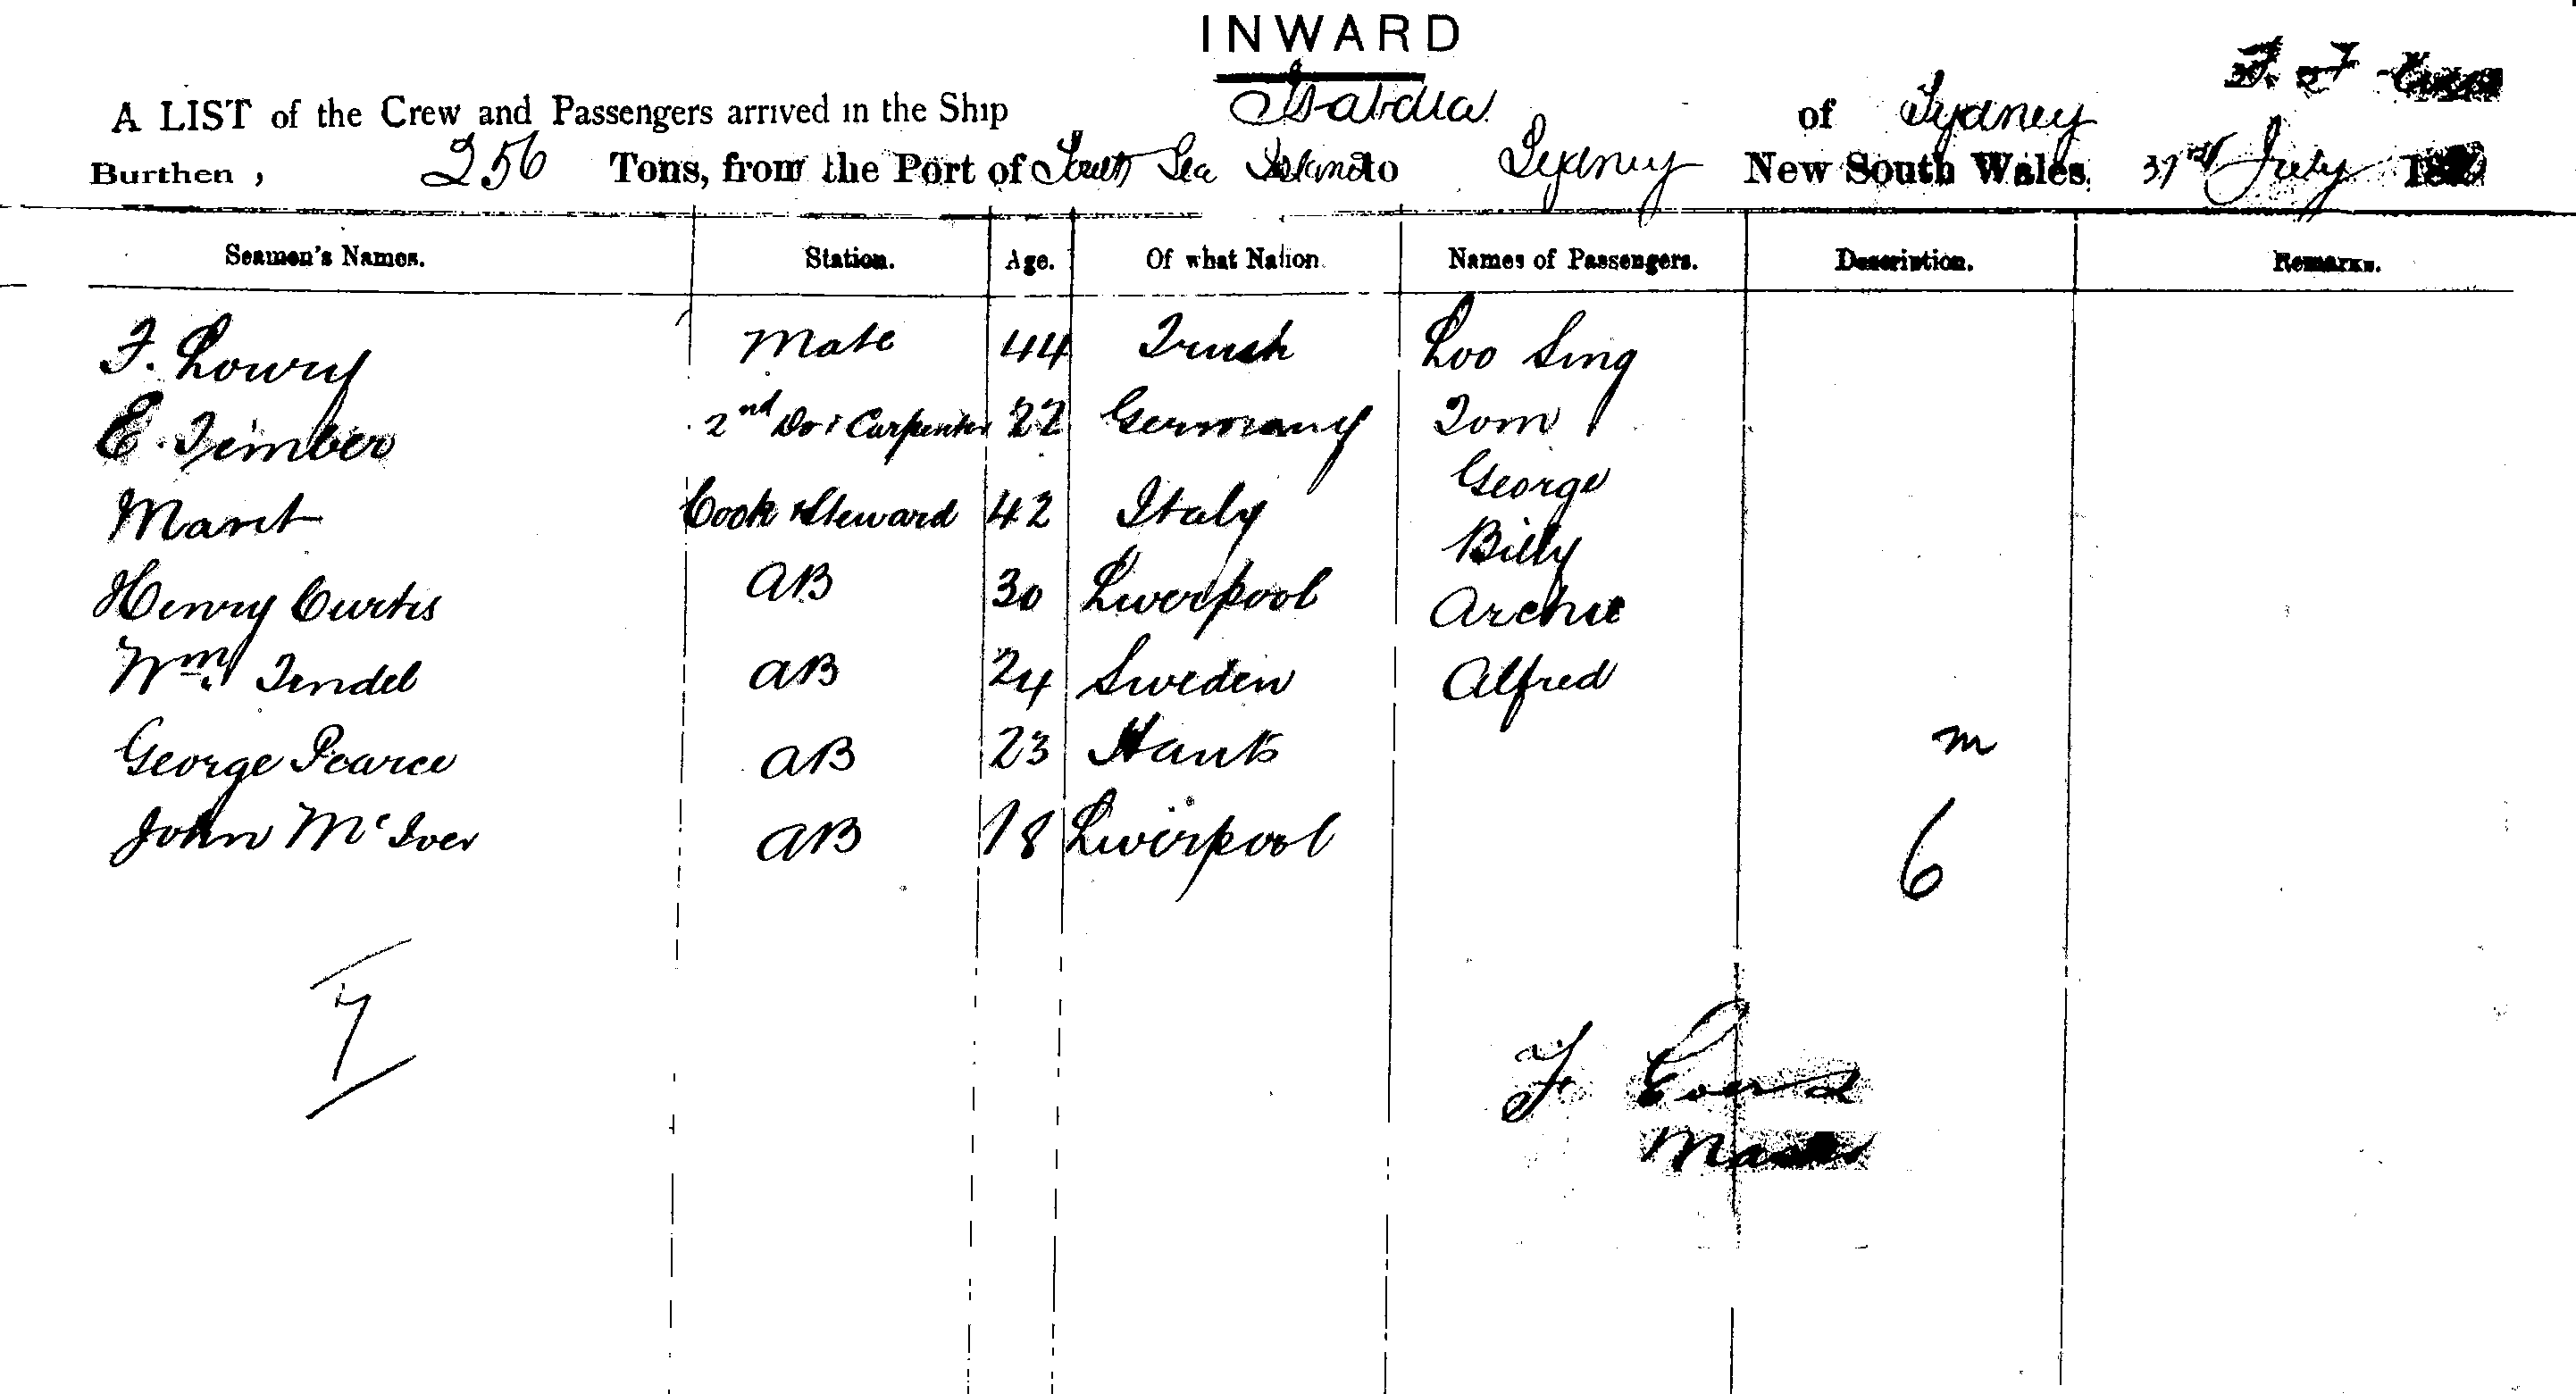 INWARD
A LIST of the Crew and Passengers arrived in the Ship Isabella of Sydney
Burthen, 256 Tons, from the Port of South Sea Islands to Sydney New South Wales 31st July
Seamen's Names. Station. Age. Of what Nation. Names of Passengers. Description. Remarks.
F. Lowry Mate 44 Irish Loo Sing
E. Timbero 2nd Do & Carpenter 22 Germany Tom
Cook & Steward 42 Italy George
Billy
Henry Curtis AB 30 Liverpool Archie
Wm. Tindel AB 24 Sweden Alfred
George Pearce AB 23 Hants m
John McIver AB 18 Liverpool 6
7
F
Master